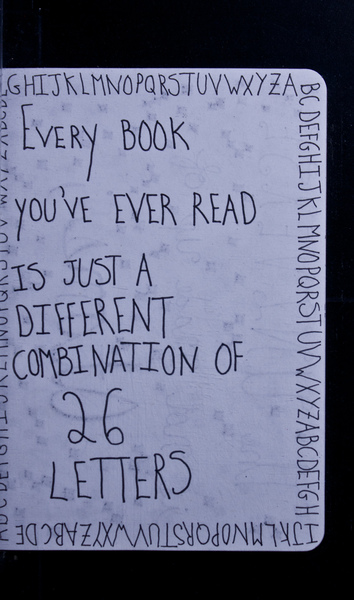 GHIJKLMNOPQRSTUVWXYZA
BCDEFGHIJKLMNOPQRSTUVWXYZABCDEFGH
EVERY BOOK
YOU'VE EVER READ
IS JUST A
DIFFERENT
COMBINATION OF
26
LETTERS
IJKLMNOPQRSTUVWXYZABCDE